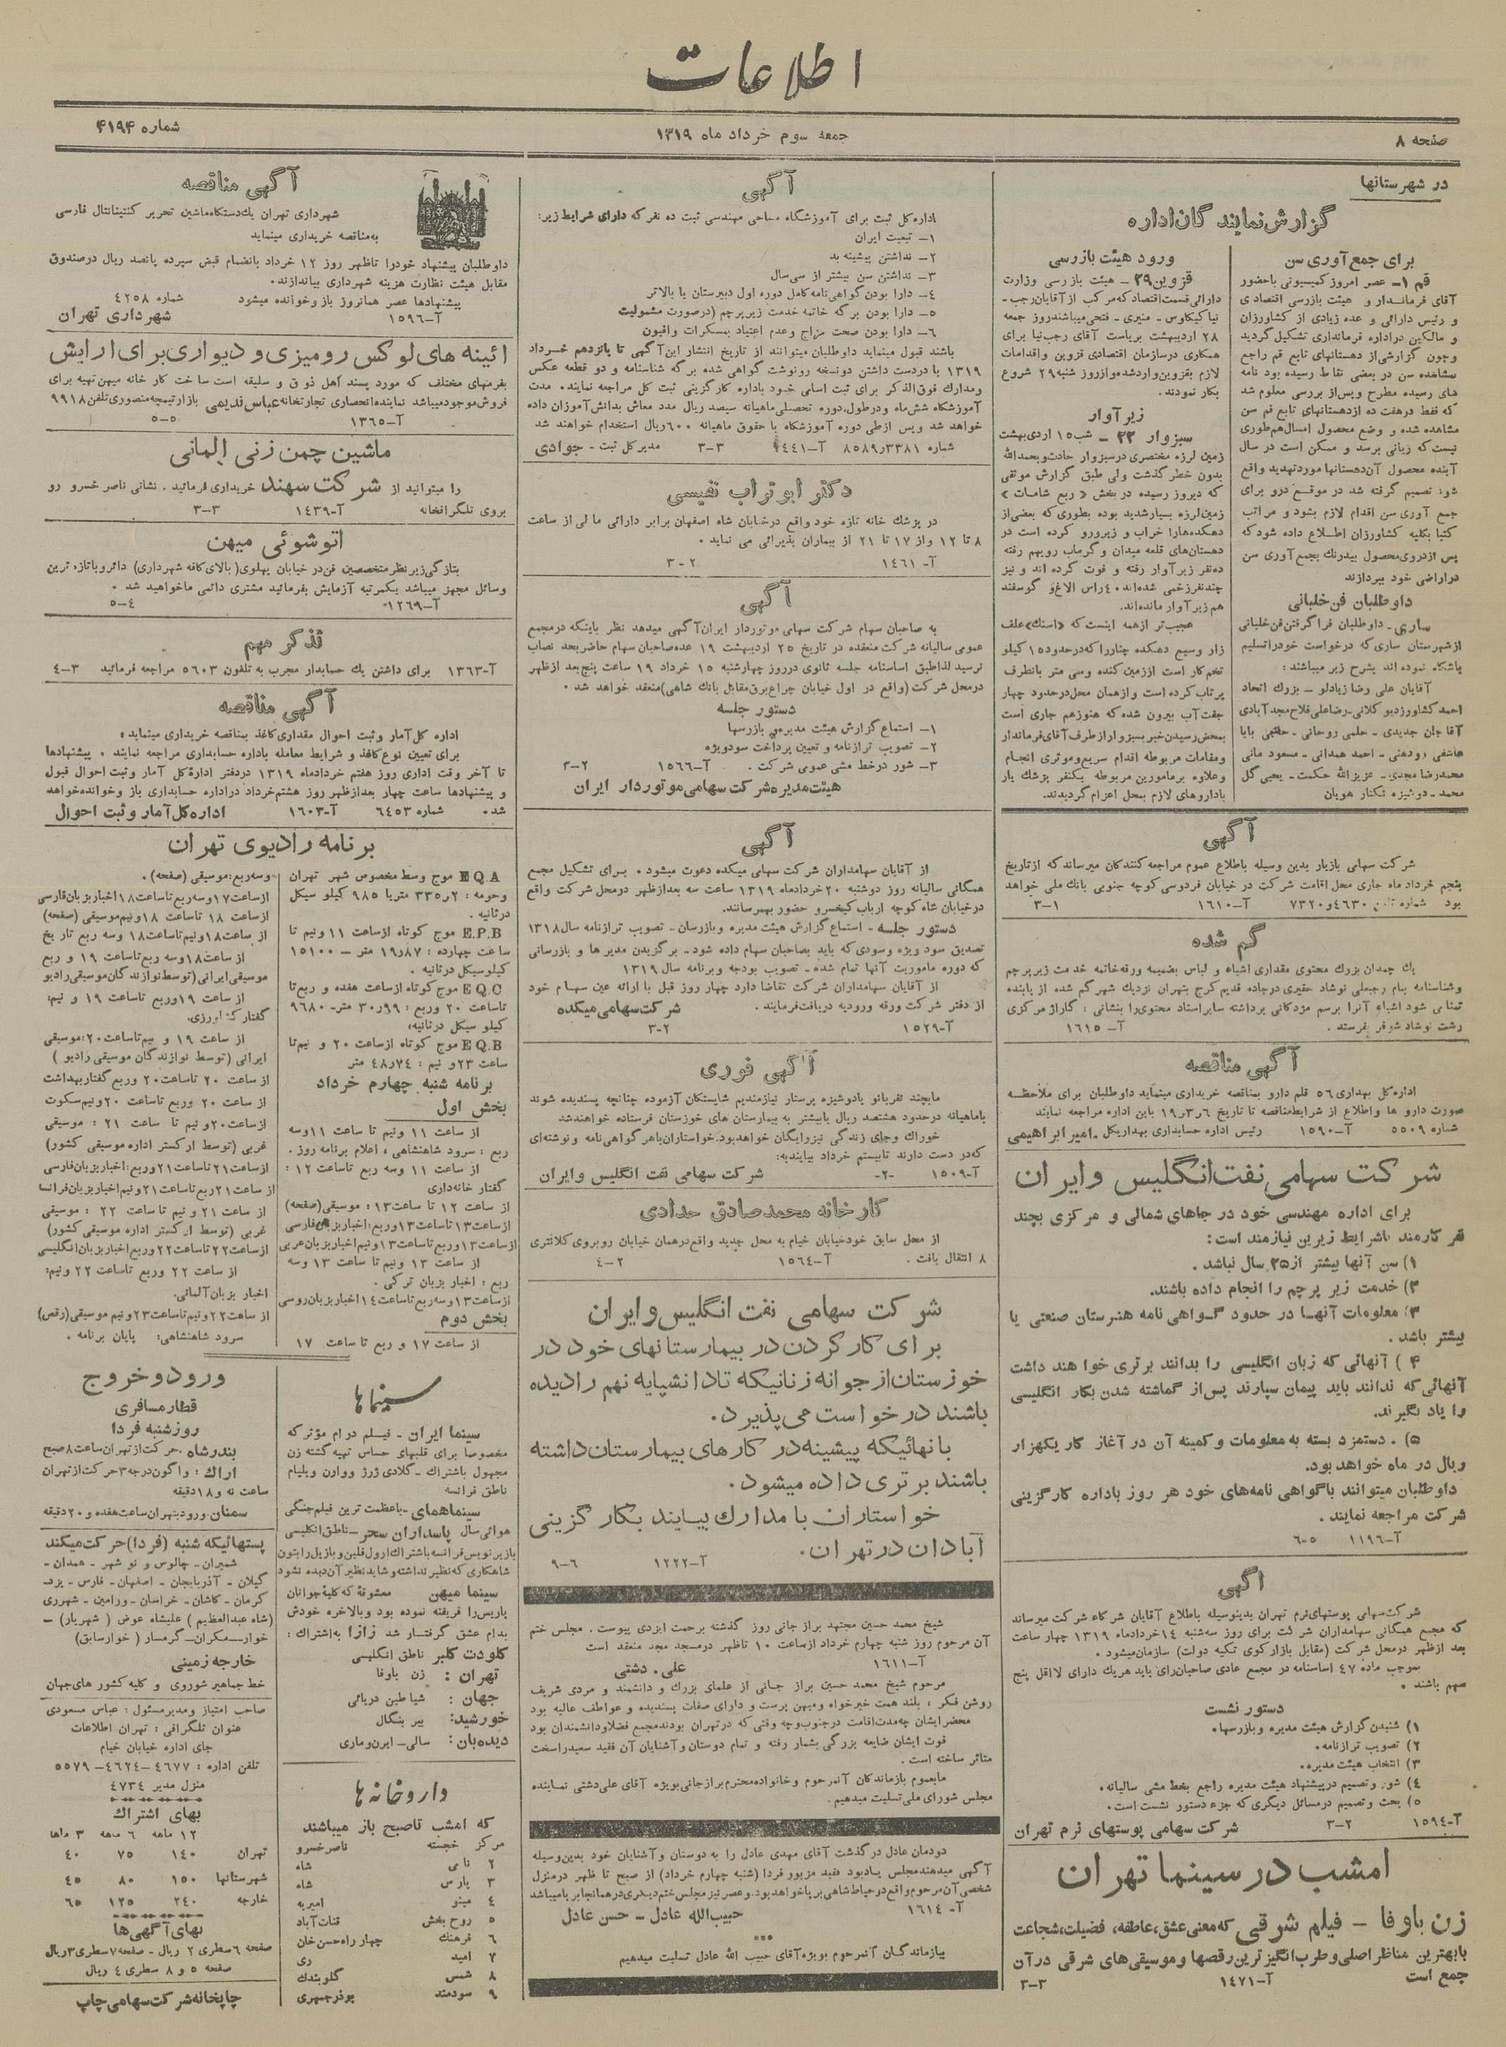 اطلاعات
صفحه ۸
جمعه سوم خرداد ماه ۱۳۱۹
شماره ۴۱۹۴
در شهرستانها
گزارش نمایندگان اداره
برای جمع آوری سن
قم ۱- عصر امروز کمیسیونی با حضور
آقای فرماندار و هیئت بازرسی اقتصادی
و رئیس دارائی و عده زیادی از کشاورزان
و مالکین در اداره فرمانداری تشکیل گردید
و چون گزارشی از دهستانهای تابع قم راجع
بمشاهده سن در بعضی نقاط رسیده بود نامه
های رسیده مطرح و پس از بررسی معلوم شد
که فقط در هفت ده از دهستانهای تابع قم سن
مشاهده شده و وضع محصول امسال هم طوری
نیست که زیانی برسد و ممکن است در سال
آینده محصول آن دهستانها مورد تهدید واقع
شود تصمیم گرفته شد در موقع درو برای
جمع آوری سن اقدام لازم بشود و مراتب
کتبا بکلیه کشاورزان اطلاع داده شود که
پس از دروی محصول بیدرنگ بجمع آوری سن
در اراضی خود بپردازند
داوطلبان فن خلبانی
ساری - داوطلبان فرا گرفتن فن خلبانی
از شهرستان ساری که درخواست خود را تسلیم
باشگاه نموده اند بشرح زیر میباشند:
آقایان علی رضا زیادلو - بزرك اتحاد
احمد کشاورز دیو کلائی - رضا علی فلاح مجد آبادی
آقا جان جدیدی - حلمی روحانی - حقیقی بابا
هاشمی رودهنی - احمد همدانی - مسعود مانی
محمدرضا مجدی - عزیزالله حکمت - یحیی گل
محمد - دوشیزه شکنار هویان
ورود هیئت بازرسی
قزوین ۲۹ - هیئت بازرسی وزارت
دارائی قسمت اقتصاد که مرکب از آقایان رجب-
نیا کیکاوس - منیری - فتحی میباشند روز جمعه
۲۸ اردیبهشت بریاست آقای رجب نیا برای
همکاری در سازمان اقتصادی قزوین و اقدامات
لازم بقزوین وارد شده و از روز شنبه ۲۹ شروع
بکار نمودند.
زیر آوار
سبزوار ۲۲ - شب ۱۵ اردی بهشت
زمین لرزه مختصری در سبزوار حادث و بحمدالله
بدون خطر گذشت ولی طبق گزارش موثقی
که دیروز رسیده در بخش « ربع شامات »
زمین لرزه بسیار شدید بوده بطوری که بعضی از
دهکده ها را خراب و زیر و رو کرده است در
دهستان های قلعه میدان و گرماب رویهم رفته
ده نفر زیر آوار رفته و فوت کرده اند و نیز
چند نفر زخمی شده اند ۴۰ راس الاغ و گوسفند
هم زیر آوار مانده اند.
عجیب تر از همه اینست که «اسنك» علف
زار وسیع دهکده چنار را که در حدود ۱۵ کیلو
تخم کار است از زمین کنده و سی متر بانطرف
پرتاب کرده است و از همان محل در حدود چهار
جفت آب بیرون شده که هنوز هم جاری است
بمحض رسیدن خبر بسبزوار از طرف آقای فرماندار
و مقامات مربوطه اقدام سریع و موثری انجام
و علاوه بر مامورین مربوطه یکنفر پزشك یار
با داروهای لازم بمحل اعزام گردیدند.
آگهی
شرکت سهامی بازیار بدین وسیله باطلاع عموم مراجعه کنندگان میرساند که از تاریخ
پنجم خرداد ماه جاری محل اقامت شرکت در خیابان فردوسی کوچه جنوبی بانك ملی خواهد
بود شماره تلفن ۴۶۳۰ و ۷۳۲۰ آ-۱۶۱۰ ۳-۱
گم شده
یك چمدان بزرك محتوی مقداری اشیاء و لباس بضمیمه ورقه خاتمه خدمت زیر پرچم
و شناسنامه بنام رجبعلی نوشاد حقیری در جاده قدیم کرج بتهران نزدیك شهر گم شده از یابنده
تمنا می شود اشیاء آنرا برسم مژدگانی برداشته سایر اسناد محتوی را بنشانی : گاراژ مرکزی
رشت نوشاد شوفر بفرستد . آ- ۱۶۱۵
آگهی مناقصه
اداره کل بهداری ۵۶ قلم دارو بمناقصه خریداری مینماید داوطلبان برای ملاحظه
صورت دارو ها و اطلاع از شرایط مناقصه تا تاریخ ۱۹ر۳ر۶ باین اداره مراجعه نمایند
شماره ۵۵۰۹ آ-۱۵۹۰ رئیس اداره حسابداری بهداری کل . امیر ابراهیمی
شرکت سهامی نفت انگلیس و ایران
برای اداره مهندسی خود در جاهای شمالی و مرکزی بچند
نفر کارمند باشرایط زیرین نیازمند است:
۱) سن آنها بیشتر از ۳۵ سال نباشد .
۲) خدمت زیر پرچم را انجام داده باشند.
۳) معلومات آنها در حدود گواهی نامه هنرستان صنعتی یا
بیشتر باشد .
۴) آنهائی که زبان انگلیسی را بدانند برتری خواهند داشت
آنهائی که ندانند باید پیمان سپارند پس از گماشته شدن بکار انگلیسی
را یاد بگیرند.
۵) . دستمزد بسته به معلومات و کمینه آن در آغاز کار یکهزار
و ریال در ماه خواهد بود.
داوطلبان میتوانند با گواهی نامه های خود هر روز باداره کارگزینی
شرکت مراجعه نمایند .
آ-۱۱۹۶ ۶-۵
آگهی
شرکت سهامی پوستهای نرم تهران بدینوسیله باطلاع آقایان شرکاء شرکت میرساند
که مجمع همگانی سهامداران شرکت برای روز سه شنبه ۱۴ خرداد ماه ۱۳۱۹ چهار ساعت
بعد از ظهر در محل شرکت (مقابل بازار کوی تکیه دولت) سازمان میشود .
بموجب ماده ۴۷ اساسنامه در مجمع عادی صاحبان رای باید هریك دارای لااقل پنج
سهم باشند .
دستور نشست
۱) شنیدن گزارش هیئت مدیره و بازرسها.
۲) تصویب ترازنامه.
۳) انتخاب هیئت مدیره.
۴) شور و تصمیم در پیشنهاد هیئت مدیره راجع بخط مشی سالیانه.
۵) بحث و تصمیم در مسائل دیگری که جزء دستور نشست است.
آ-۱۵۹۴ ۳-۲ شرکت سهامی پوستهای نرم تهران
امشب در سینما تهران
زن باوفا - فیلم شرقی که معنی عشق، عاطفه، فضیلت، شجاعت
با بهترین مناظر اصلی و طرب انگیز ترین رقصها و موسیقی های شرقی در آن
جمع است آ-۱۴۷۱ ۳-۳
آگهی
اداره کل ثبت برای آموزشگاه مساحی مهندسی ثبت ده نفر که دارای شرایط زیر:
۱- تبعیت ایران
۲- نداشتن پیشینه بد
۳- نداشتن سن بیشتر از سی سال
۴- دارا بودن گواهی نامه کامل دوره اول دبیرستان یا بالاتر
۵- دارا بودن برگه خاتمه خدمت زیر پرچم (در صورت مشمولیت
۶- دارا بودن صحت مزاج و عدم اعتیاد بمسکرات و افیون
باشند قبول مینماید داوطلبان میتوانند از تاریخ انتشار این آگهی تا پانزدهم خرداد
۱۳۱۹ با دردست داشتن دو نسخه رونوشت گواهی شده برگه شناسنامه و دو قطعه عکس
و مدارك فوق الذکر برای ثبت اسامی خود باداره کارگزینی ثبت کل مراجعه نماینده مدت
آموزشگاه شش ماه و در طول دوره تحصیلی ماهیانه سیصد ریال مدد معاش بدانش آموزان داده
خواهد شد و پس از طی دوره آموزشگاه با حقوق ماهیانه ۶۰۰ ریال استخدام خواهند شد
شماره ۳۳۸۱ر۸۵۸۹ آ-۱۴۴۱ ۳-۳ مدیر کل ثبت - جوادی
دکتر ابوتراب نفیسی
در پزشك خانه تازه خود واقع در خیابان شاه اصفهان برابر دارائی مالی از ساعت
۸ تا ۱۲ و از ۱۷ تا ۲۱ از بیماران پذیرائی می نماید .
آ-۱۴۶۱ ۳-۲
آگهی
به صاحبان سهام شرکت سهامی موتوردار ایران آگهی میدهد نظر باینکه در مجمع
عمومی سالیانه شرکت منعقده در تاریخ ۲۵ اردیبهشت ۱۹ عده صاحبان سهام حاضر بحد نصاب
نرسید لذا طبق اساسنامه جلسه ثانوی در روز چهارشنبه ۱۵ خرداد ۱۹ ساعت پنج بعد از ظهر
در محل شرکت (واقع در اول خیابان چراغ برق مقابل بانك شاهی) منعقد خواهد شد .
دستور جلسه
۱- استماع گزارش هیئت مدیره و بازرسها
۲- تصویب ترازنامه و تعیین پرداخت سود ویژه
۳- شور در خط مشی عمومی شرکت . آ-۱۵۶۶ ۳-۲
هیئت مدیره شرکت سهامی موتوردار ایران
آگهی
از آقایان سهامداران شرکت سهامی میکده دعوت میشود . برای تشکیل مجمع
همگانی سالیانه روز دوشنبه ۲۰ خرداد ماه ۱۳۱۹ ساعت سه بعد از ظهر در محل شرکت واقع
در خیابان شاه کوچه ارباب کیخسرو حضور بهمرسانند.
دستور جلسه - استماع گزارش هیئت مدیره و بازرسان - تصویب ترازنامه سال ۱۳۱۸
تصدیق سود ویژه و سودی که باید بصاحبان سهام داده شود - برگزیدن مدیر ها و بازرسانی
که دوره ماموریت آنها تمام شده - تصویب بودجه و برنامه سال ۱۳۱۹
از آقایان سهامداران شرکت تقاضا دارد چهار روز قبل با ارائه عین سهام خود
از دفتر شرکت ورقه ورودیه دریافت فرمایند. شرکت سهامی میکده
آ-۱۵۲۹ ۳-۲
آگهی فوری
ما بچند نفر بانو یا دوشیزه پرستار نیازمندیم شایستگان آزموده چنانچه پسندیده شوند
با ماهیانه در حدود هشتصد ریال یا بیشتر به بیمارستان های خوزستان فرستاده خواهند شد
خوراك و جای زندگی نیز رایگان خواهد بود. خواستاران با هر گواهی نامه و نوشته ای
که در دست دارند تا بیستم خرداد بیایند به:
آ-۱۵۰۹ -۲ شرکت سهامی نفت انگلیس و ایران
کارخانه محمد صادق حدادی
از محل سابق خود خیابان خیام به محل جدید واقع در همان خیابان روبروی کلانتری
۸ انتقال یافت . آ-۱۵۶۴ ۴-۲
شرکت سهامی نفت انگلیس و ایران
برای کار کردن در بیمارستانهای خود در
خوزستان از جوانه زنانیکه تا دانشپایه نهم را دیده
باشند درخواست می پذیرد.
با نهائیکه پیشینه در کارهای بیمارستان داشته
باشند برتری داده میشود.
خواستاران با مدارك بیایند بکار گزینی
آبادان در تهران.
آ-۱۲۲۲ ۹-۶
شیخ محمد حسین مجتهد برازجانی روز گذشته برحمت ایزدی پیوست . مجلس ختم
آن مرحوم روز شنبه چهارم خرداد از ساعت ۱۰ تا ظهر در مسجد مجد منعقد است
آ-۱۶۱۱ علی دشتی
مرحوم شیخ محمد حسین برازجانی از علمای بزرك و دانشمند و مردی شریف
روشن فکر ، بلند همت خیرخواه و میهن پرست و دارای صفات پسندیده و عواطف عالیه بود
محضر ایشان چه مدت اقامت در جنوب و چه وقتی که در تهران بودند مجمع فضلا و دانشمندان بود
فوت ایشان ضایعه بزرگی بشمار رفته و تمام دوستان و آشنایان آن فقید سعید را سخت
متاثر ساخته است .
ما بعموم بازماندگان آنمرحوم و خانواده محترم برازجانی بویژه آقای علی دشتی نماینده
مجلس شورای ملی تسلیت میدهیم .
دودمان عادل در گذشت آقای مهدی عادل را به دوستان و آشنایان خود بدین وسیله
آگهی میدهند مجلس یادبود فقید مزبور فردا (شنبه چهارم خرداد) از صبح تا ظهر در منزل
شخصی آن مرحوم واقع در حیاط شاهی برپا خواهد بود. و عصر نیز مجلس ختم دیگری در همانجا برپا میباشد
آ-۱۶۱۴ حبیب الله عادل - حسن عادل
بازماندگان آنمرحوم بویژه آقای حبیب الله عادل تسلیت میدهیم
آگهی مناقصه
شهرداری تهران یك دستگاه ماشین تحریر کنتیناتال فارسی
به مناقصه خریداری مینماید
داوطلبان پیشنهاد خود را تا ظهر روز ۱۲ خرداد بانضمام قبض سپرده پانصد ریال در صندوق
مقابل هیئت نظارت هزینه شهرداری بیاندازند.
پیشنهادها عصر همانروز باز و خوانده میشود شماره ۴۲۵۸
آ-۱۵۹۶ شهرداری تهران
ائینه های لوکس رومیزی و دیواری برای ارایش
بفرمهای مختلف که مورد پسند اهل ذوق و سلیقه است ساخت کار خانه میهن تهیه برای
فروش موجود میباشد نماینده انحصاری تجارتخانه عباس قدیمی بازار تیمچه منصوری تلفن ۹۹۱۸
آ-۱۳۶۵ ۵-۵
ماشین چمن زنی المانی
را میتوانید از شرکت سهند خریداری فرمائید . نشانی ناصر خسرو رو
بروی تلگرافخانه آ-۱۴۳۹ ۳-۳
اتوشوئی میهن
بتازگی زیر نظر متخصصین فن در خیابان پهلوی (بالای کافه شهرداری) دائر و با تازه ترین
وسائل مجهز میباشد یکمرتبه آزمایش بفرمائید مشتری دائمی ما خواهید شد .
آ-۱۲۶۹ ۵-۴
تذکر مهم
آ-۱۳۶۳ برای داشتن یك حسابدار مجرب به تلفون ۵۶۰۳ مراجعه فرمائید ۴-۳
آگهی مناقصه
اداره کل آمار و ثبت احوال مقداری کاغذ بمناقصه خریداری مینماید:
برای تعیین نوع کاغذ و شرایط معامله باداره حسابداری مراجعه نمایند . پیشنهادها
تا آخر وقت اداری روز هفتم خرداد ماه ۱۳۱۹ در دفتر اداره کل آمار و ثبت احوال قبول
و پیشنهادها ساعت چهار بعد از ظهر روز هشتم خرداد در اداره حسابداری باز و خوانده خواهد
شد. شماره ۶۴۵۳ آ-۱۶۰۳ اداره کل آمار و ثبت احوال
برنامه رادیوی تهران
EQA موج وسط مخصوص شهر تهران
و حومه : ۲ر۳۳۵ متر یا ۹۸۵ کیلو سیکل
در ثانیه .
E.P.B موج کوتاه از ساعت ۱۱ و نیم تا
ساعت چهارده : ۸۷ر۱۹ متر - ۱۵۱۰۰
کیلو سیکل در ثانیه .
EQ.C موج کوتاه از ساعت هفده و ربع تا
تا ساعت ۲۰ و ربع : ۹۹ر۳۰ متر - ۹۶۸۰
کیلو سیکل در ثانیه.
EQ.B موج کوتاه از ساعت ۲۰ و نیم تا
ساعت ۲۳ و نیم : ۷۴ر۴۸ متر
برنامه شنبه چهارم خرداد
بخش اول
از ساعت ۱۱ و نیم تا ساعت ۱۱ و سه
ربع : سرود شاهنشاهی ، اعلام برنامه روز .
از ساعت ۱۱ و سه ربع تا ساعت ۱۲ :
گفتار خانه داری
از ساعت ۱۲ تا ساعت ۱۳ : موسیقی (صفحه)
از ساعت ۱۳ تا ساعت ۱۳ و ربع : اخبار بزبان فارسی
از ساعت ۱۳ و ربع تا ساعت ۱۳ و نیم اخبار بزبان عربی
از ساعت ۱۳ و نیم تا ساعت ۱۳ و سه
ربع : اخبار بزبان ترکی .
از ساعت ۱۳ و سه ربع تا ساعت ۱۴ اخبار بزبان روسی
بخش دوم
از ساعت ۱۷ و ربع تا ساعت ۱۷
و سه ربع: موسیقی (صفحه) .
از ساعت ۱۷ و سه ربع تا ساعت ۱۸ اخبار بزبان فارسی
از ساعت ۱۸ تا ساعت ۱۸ و نیم موسیقی (صفحه)
از ساعت ۱۸ و نیم تا ساعت ۱۸ و سه ربع تاریخ
از ساعت ۱۸ و سه ربع تا ساعت ۱۹ و ربع
موسیقی ایرانی (توسط نوازندگان موسیقی رادیو
از ساعت ۱۹ و ربع تا ساعت ۱۹ و نیم:
گفتار کشاورزی.
از ساعت ۱۹ و نیم تا ساعت ۲۰: موسیقی
ایرانی (توسط نوازندگان موسیقی رادیو )
از ساعت ۲۰ تا ساعت ۲۰ و ربع گفتار بهداشت
از ساعت ۲۰ و ربع تا ساعت ۲۰ و نیم سکوت
از ساعت ۲۰ و نیم تا ساعت ۲۱ : موسیقی
غربی (توسط ارکستر اداره موسیقی کشور)
از ساعت ۲۱ تا ساعت ۲۱ و ربع: اخبار بزبان فارسی
از ساعت ۲۱ و ربع تا ساعت ۲۱ و نیم اخبار بزبان فرانسه
از ساعت ۲۱ و نیم تا ساعت ۲۲ : موسیقی
غربی (توسط ارکستر اداره موسیقی کشور)
از ساعت ۲۲ تا ساعت ۲۲ و ربع اخبار بزبان انگلیسی
از ساعت ۲۲ و ربع تا ساعت ۲۲ و نیم:
اخبار بزبان آلمانی.
از ساعت ۲۲ و نیم تا ساعت ۲۳ و نیم موسیقی (رقص)
سرود شاهنشاهی: پایان برنامه .
سینماها
سینما ایران - فیلم درام مؤثر که
مخصوصا برای قلبهای حساس تهیه گشته زن
مجهول باشتراك - گلادی ژرژ و وارن ویلیام
ناطق فرانسه
سینماهمای - باعظمت ترین فیلم جنگی
هوائی سال پاسداران سحر - ناطق انگلیسی
با زیر نویس فرانسه باشتراك ارول فلین و بازیل راتبون
شاهکاری که نظیر نداشته و شاید نظیر آن دیده نشود
سینما میهن معشوقهٔ که کلیهٔ جوانان
پاریس را فریفته نموده بود و بالاخره خودش
بدام عشق گرفتار شد زازا به اشتراك :
کلودت کلبر ناطق انگلیسی
تهران : زن باوفا
جهان : شیاطین دریائی
خورشید: ببر بنگال
دیده بان: سالی - ایرن و ماری
داروخانه ها
که امشب تا صبح باز میباشند
مرکز خجسته ناصر خسرو
۲ نامی شاه
۳ پارس شاه
۴ مینو امیریه
۵ روح بخش قنات آباد
۶ فرهنك چهار راه حسن خان
۷ امید ری
۸ شمس گلوبندك
۹ سودمند بوذرجمهری
ورود و خروج
قطار مسافری
روز شنبه فردا
بندر شاه - حرکت از تهران ساعت ۸ صبح
اراك : واگون درجه ۳ حرکت از تهران
ساعت نه و ۱۸ دقیقه
سمنان - ورود بتهران ساعت هفده و ۲۰ دقیقه
پستهائیکه شنبه (فردا) حرکت میکند
شمیران - چالوس و نو شهر - همدان -
گیلان - آذربایجان - اصفهان - فارس - یزد -
کرمان - کاشان - خراسان - ورامین - شهرری
(شاه عبدالعظیم) علیشاه عوض ( شهریار) -
خوار - مکران - گرمسار (خوار سابق)
خارجه زمینی
خط جماهیر شوروی و کلیه کشور های جهان
صاحب امتیاز و مدیر مسئول : عباس مسعودی
عنوان تلگرافی : تهران اطلاعات
جای اداره خیابان خیام
تلفن اداره : ۴۶۷۷ - ۴۶۲۴ - ۵۵۷۹
منزل مدیر ۴۷۳۴
بهای اشتراك
۱۲ ماهه ۶ ماهه ۳ ماها
تهران ۱۴۰ ۷۵ ۴۰
شهرستانها ۱۵۰ ۸۰ ۴۵
خارجه ۲۴۰ ۱۲۵ ۶۵
بهای آگهی ها
صفحه ۶ سطری ۲ ریال - صفحه ۷ سطری ۳ ریال
صفحه ۵ و ۸ سطری ۴ ریال
چاپخانه شرکت سهامی چاپ